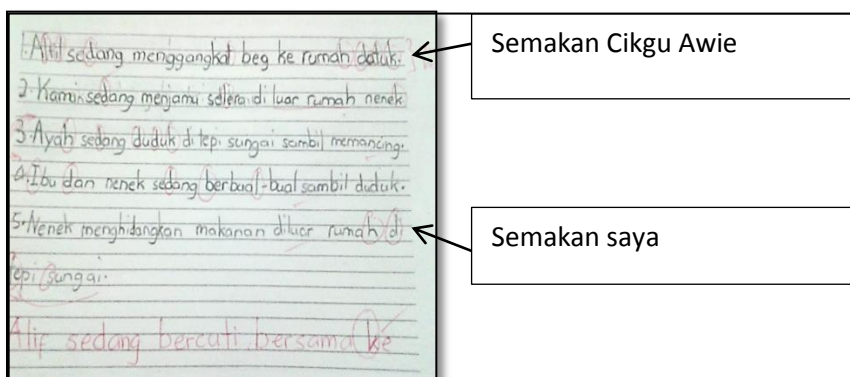 1. Alif sedang menggangkat beg ke rumah datuk.
2. Kami sedang menjamu selera di luar rumah nenek
3. Ayah sedang duduk di tepi sungai sambil memancing.
4. Ibu dan nenek sedang berbual-bual sambil duduk.
5. Nenek menghidangkan makanan diluar rumah di
tepi sungai.
Alif sedang bercuti bersama ke
Semakan Cikgu Awie
Semakan saya